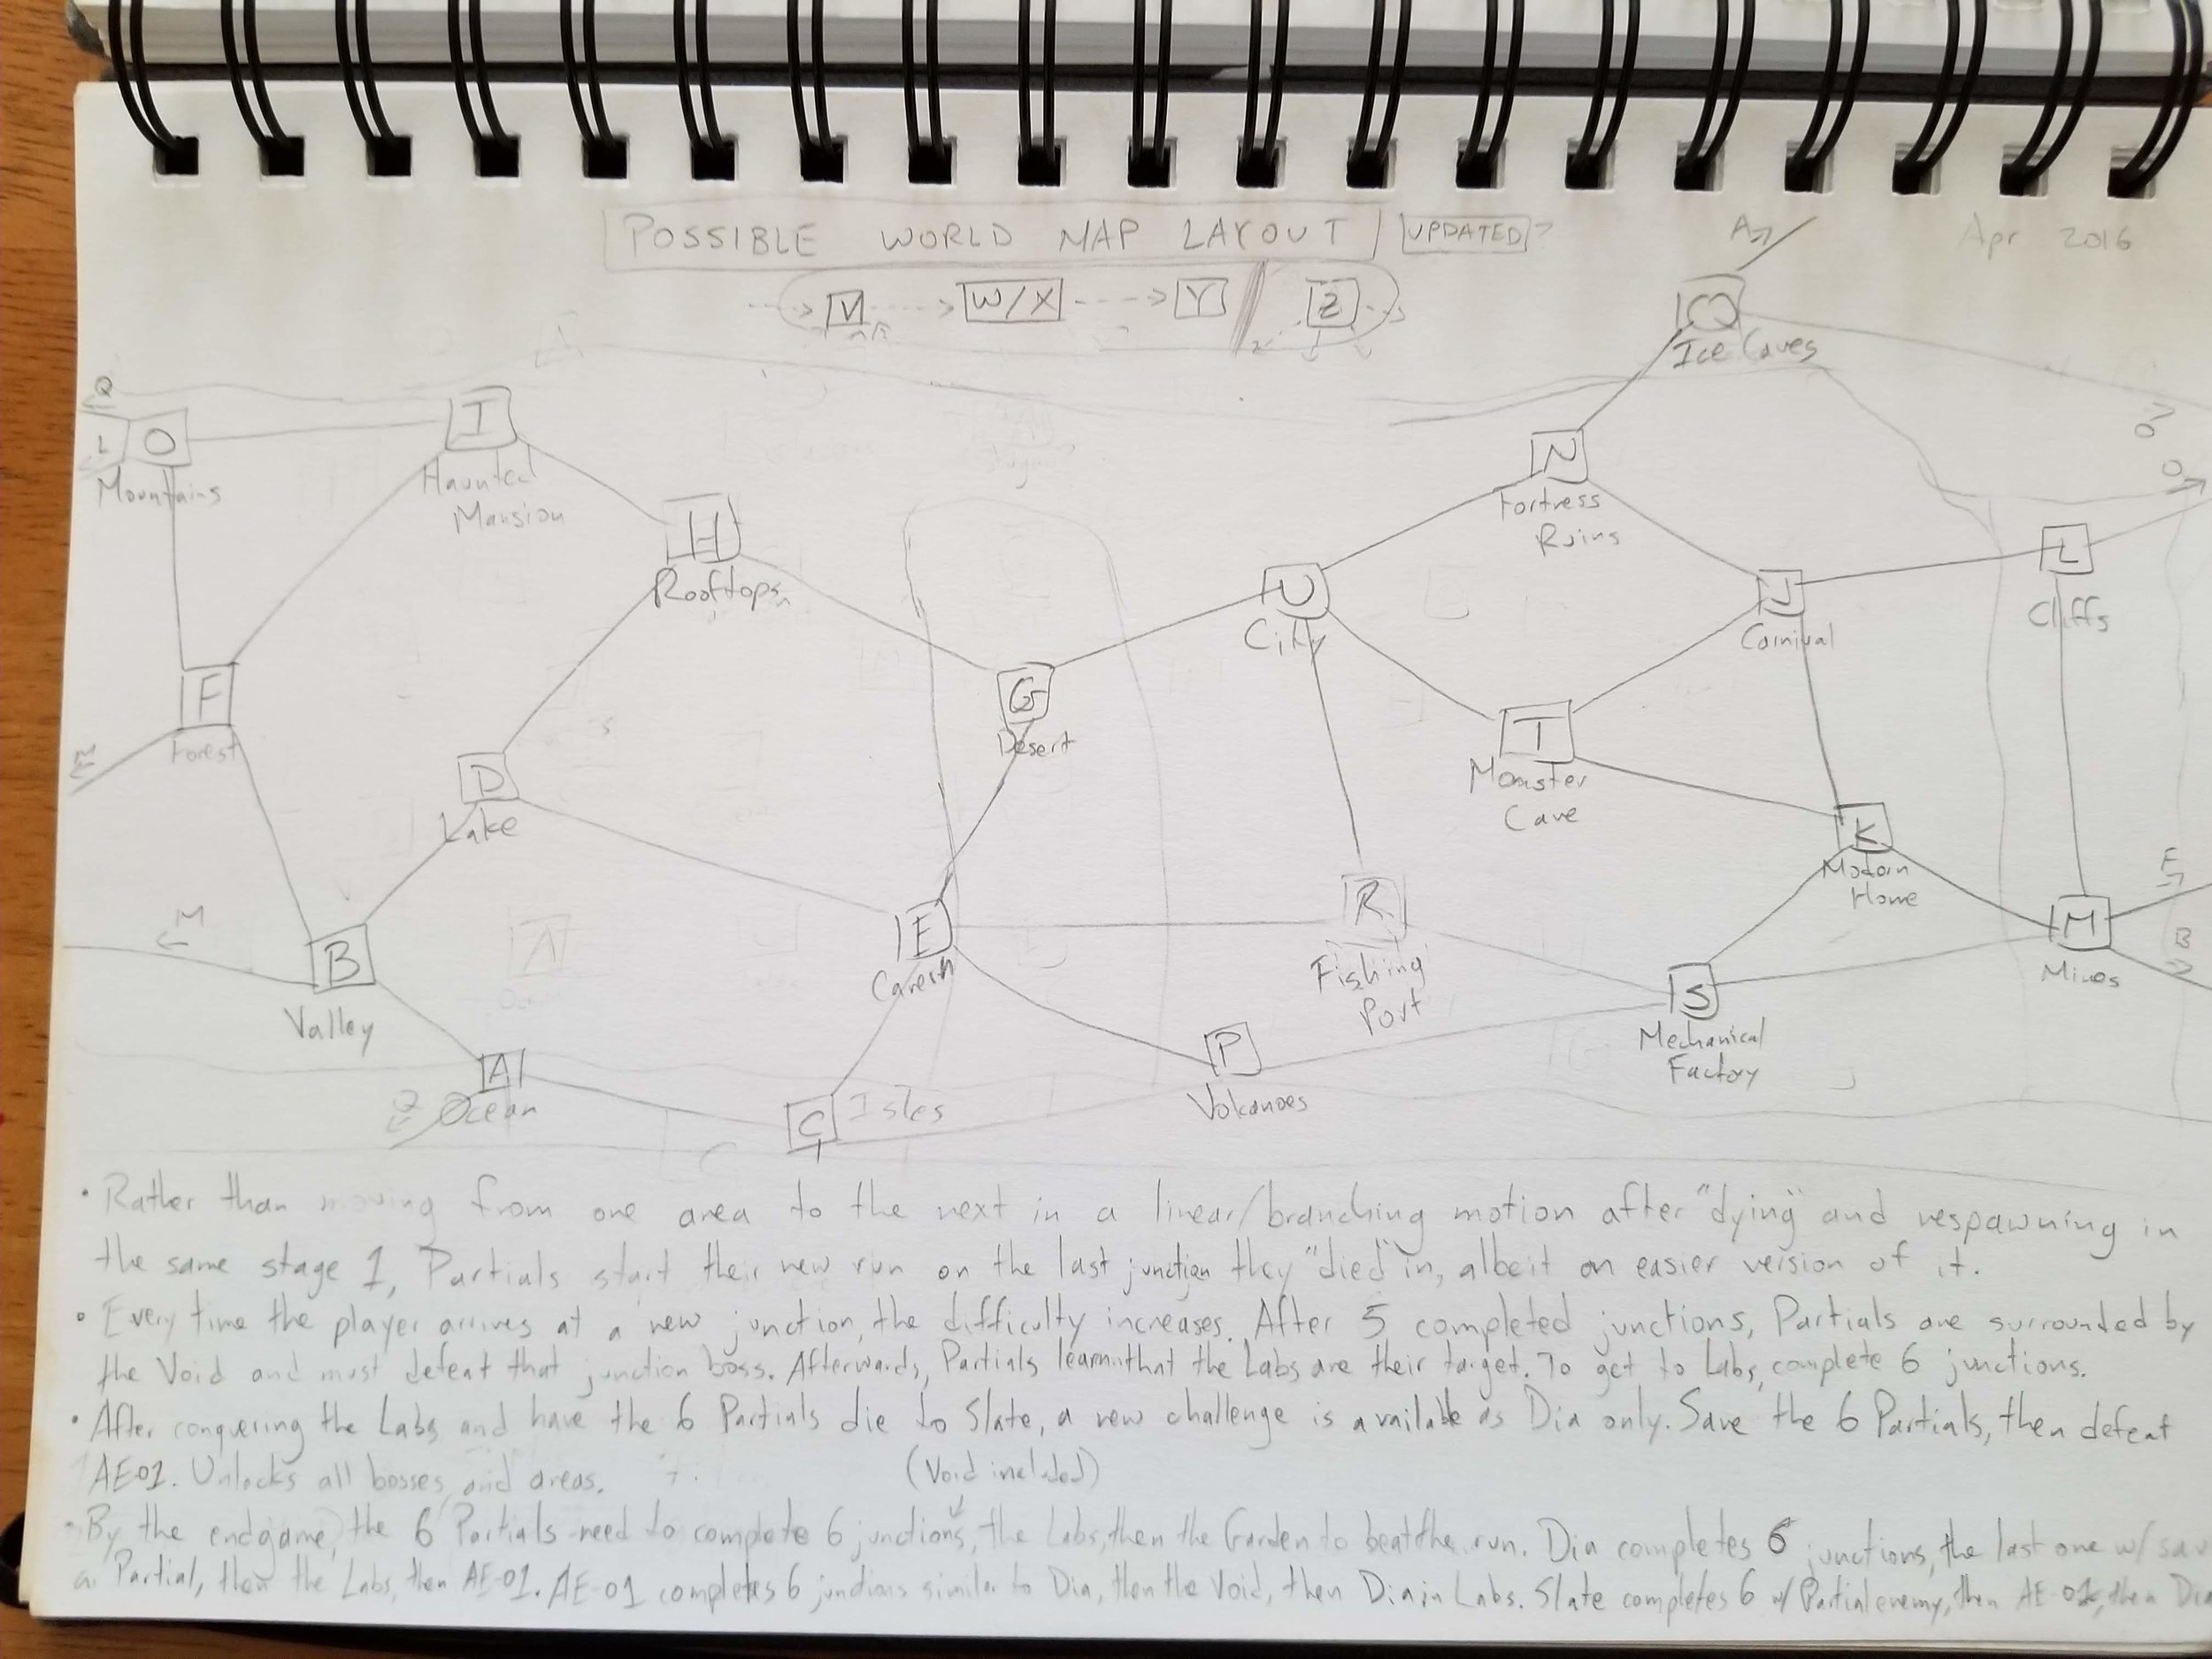 POSSIBLE WORLD MAP LAYOUT UPDATED?
Apr 2016
A
V W/X Y Z
Q
Ice Caves
Q
L O
Mountains
I
Haunted
Mansion
O
N
Fortress
Ruins
O
H
Rooftops
L
Cliffs
U
City
J
Carnival
F
Forest
G
Desert
T
Monster
Cave
M
D
Lake
K
Modern
Home
F
R
Fishing
Port
E
Cavern
M
Mines
B
M
B
Valley
S
Mechanical
Factory
P
Volcanoes
A
Ocean
Q
C Isles
• Rather than moving from one area to the next in a linear/branching motion after "dying" and respawning in
the same stage 1, Partials start their new run on the last junction they "died" in, albeit an easier version of it.
• Every time the player arrives at a new junction, the difficulty increases. After 5 completed junctions, Partials are surrounded by
the Void and must defeat that junction boss. Afterwards, Partials learn that the Labs are their target. To get to Labs, complete 6 junctions.
• After conquering the Labs and have the 6 Partials die to Slate, a new challenge is available as Dia only. Save the 6 Partials, then defeat
AE-01. Unlocks all bosses and areas.
(Void included)
• By the endgame, the 6 Partials need to complete 6 junctions, the Labs, then the Garden to beat the run. Dia completes 6 junctions, the last one w/ sav
a Partial, then the Labs, then AE-01. AE-01 completes 6 junctions similar to Dia, then the Void, then Dia in Labs. Slate completes 6 w/ Partial enemy, then AE-01, then Dia